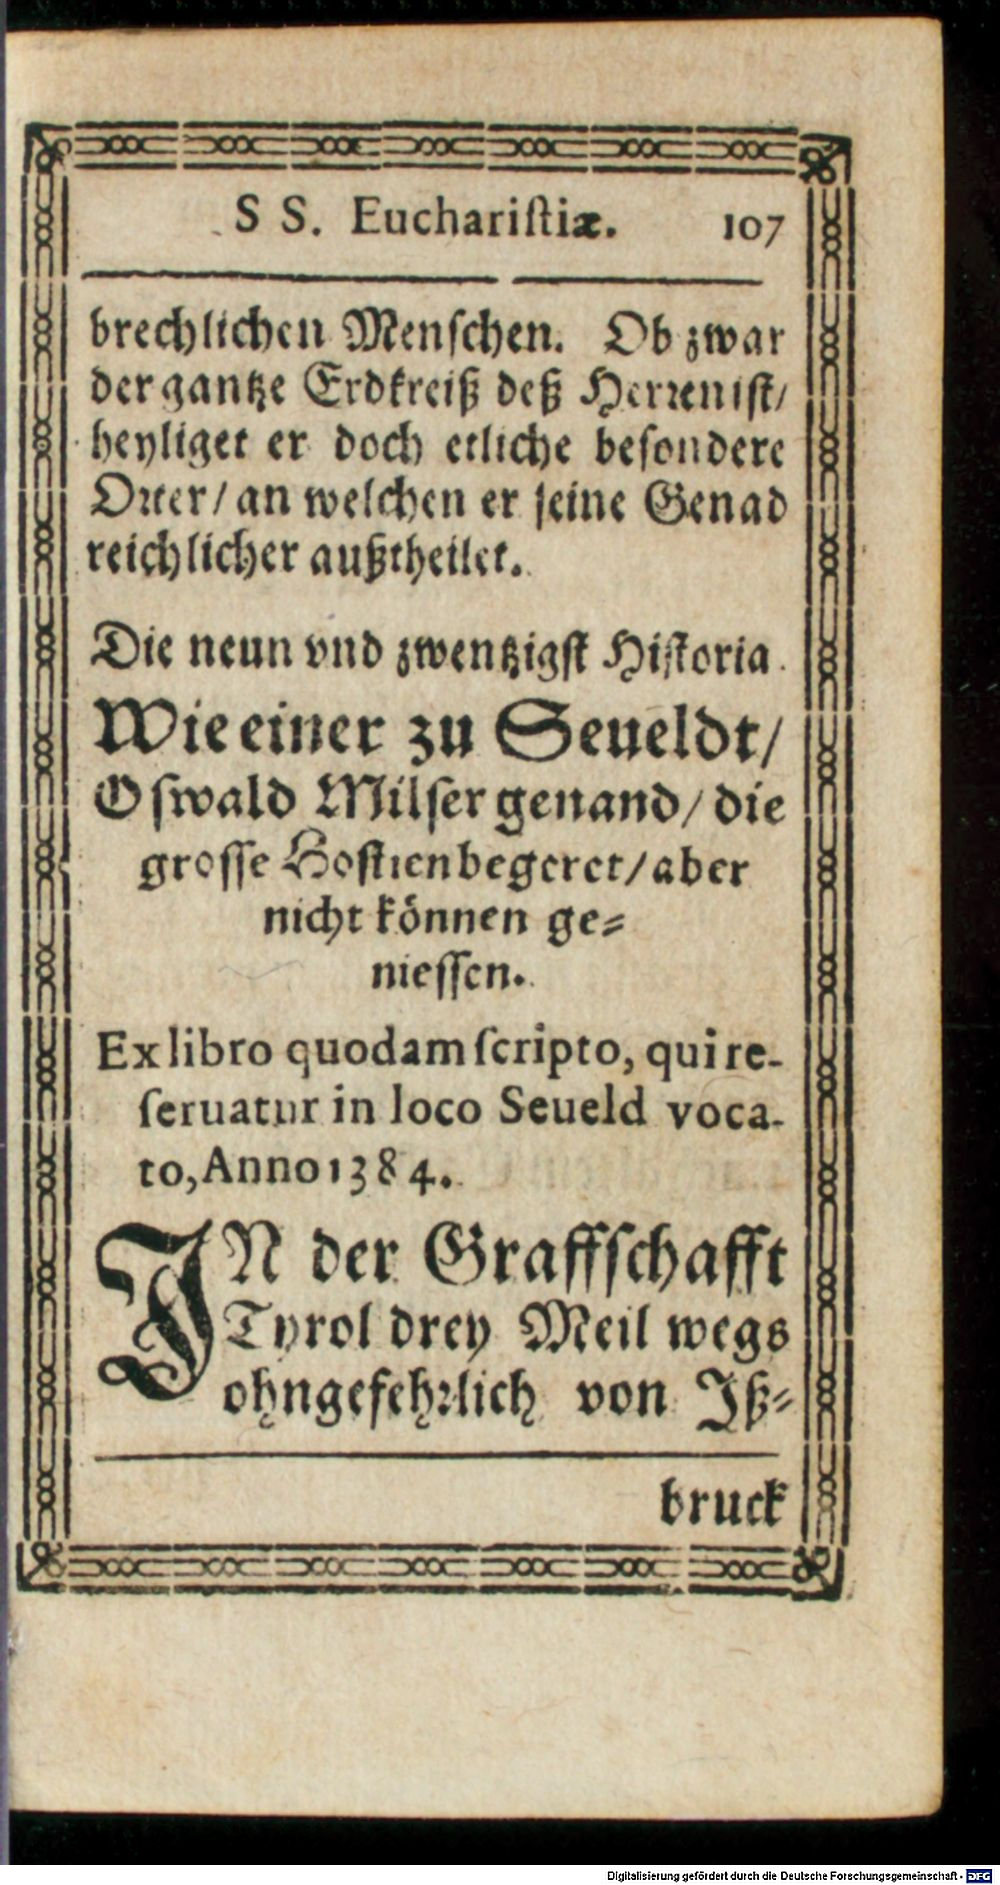 S S. Euchariſtiæ. 107
brechlichen Menſchen. Ob zwar
der gantze Erdkreiß deß Herren iſt/
heyliget er doch etliche beſondere
Orter/ an welchen er ſeine Genad
reichlicher außtheilet.
Die neun vnd zwentzigſt Hiſtoria.
Wie einer zu Seueldt/
Oſwald Milſer genand/ die
groſſe Hoſtien begeret/ aber
nicht können ge⸗
nieſſen.
Ex libro quodam ſcripto, qui re-
ſeruatur in loco Seueld voca-
to, Anno 1384.
IN der Graffſchafft
Tyrol drey Meil wegs
ohngefehrlich von Jß⸗
bruck
Digitalisierung gefördert durch die Deutsche Forschungsgemeinschaft - DFG